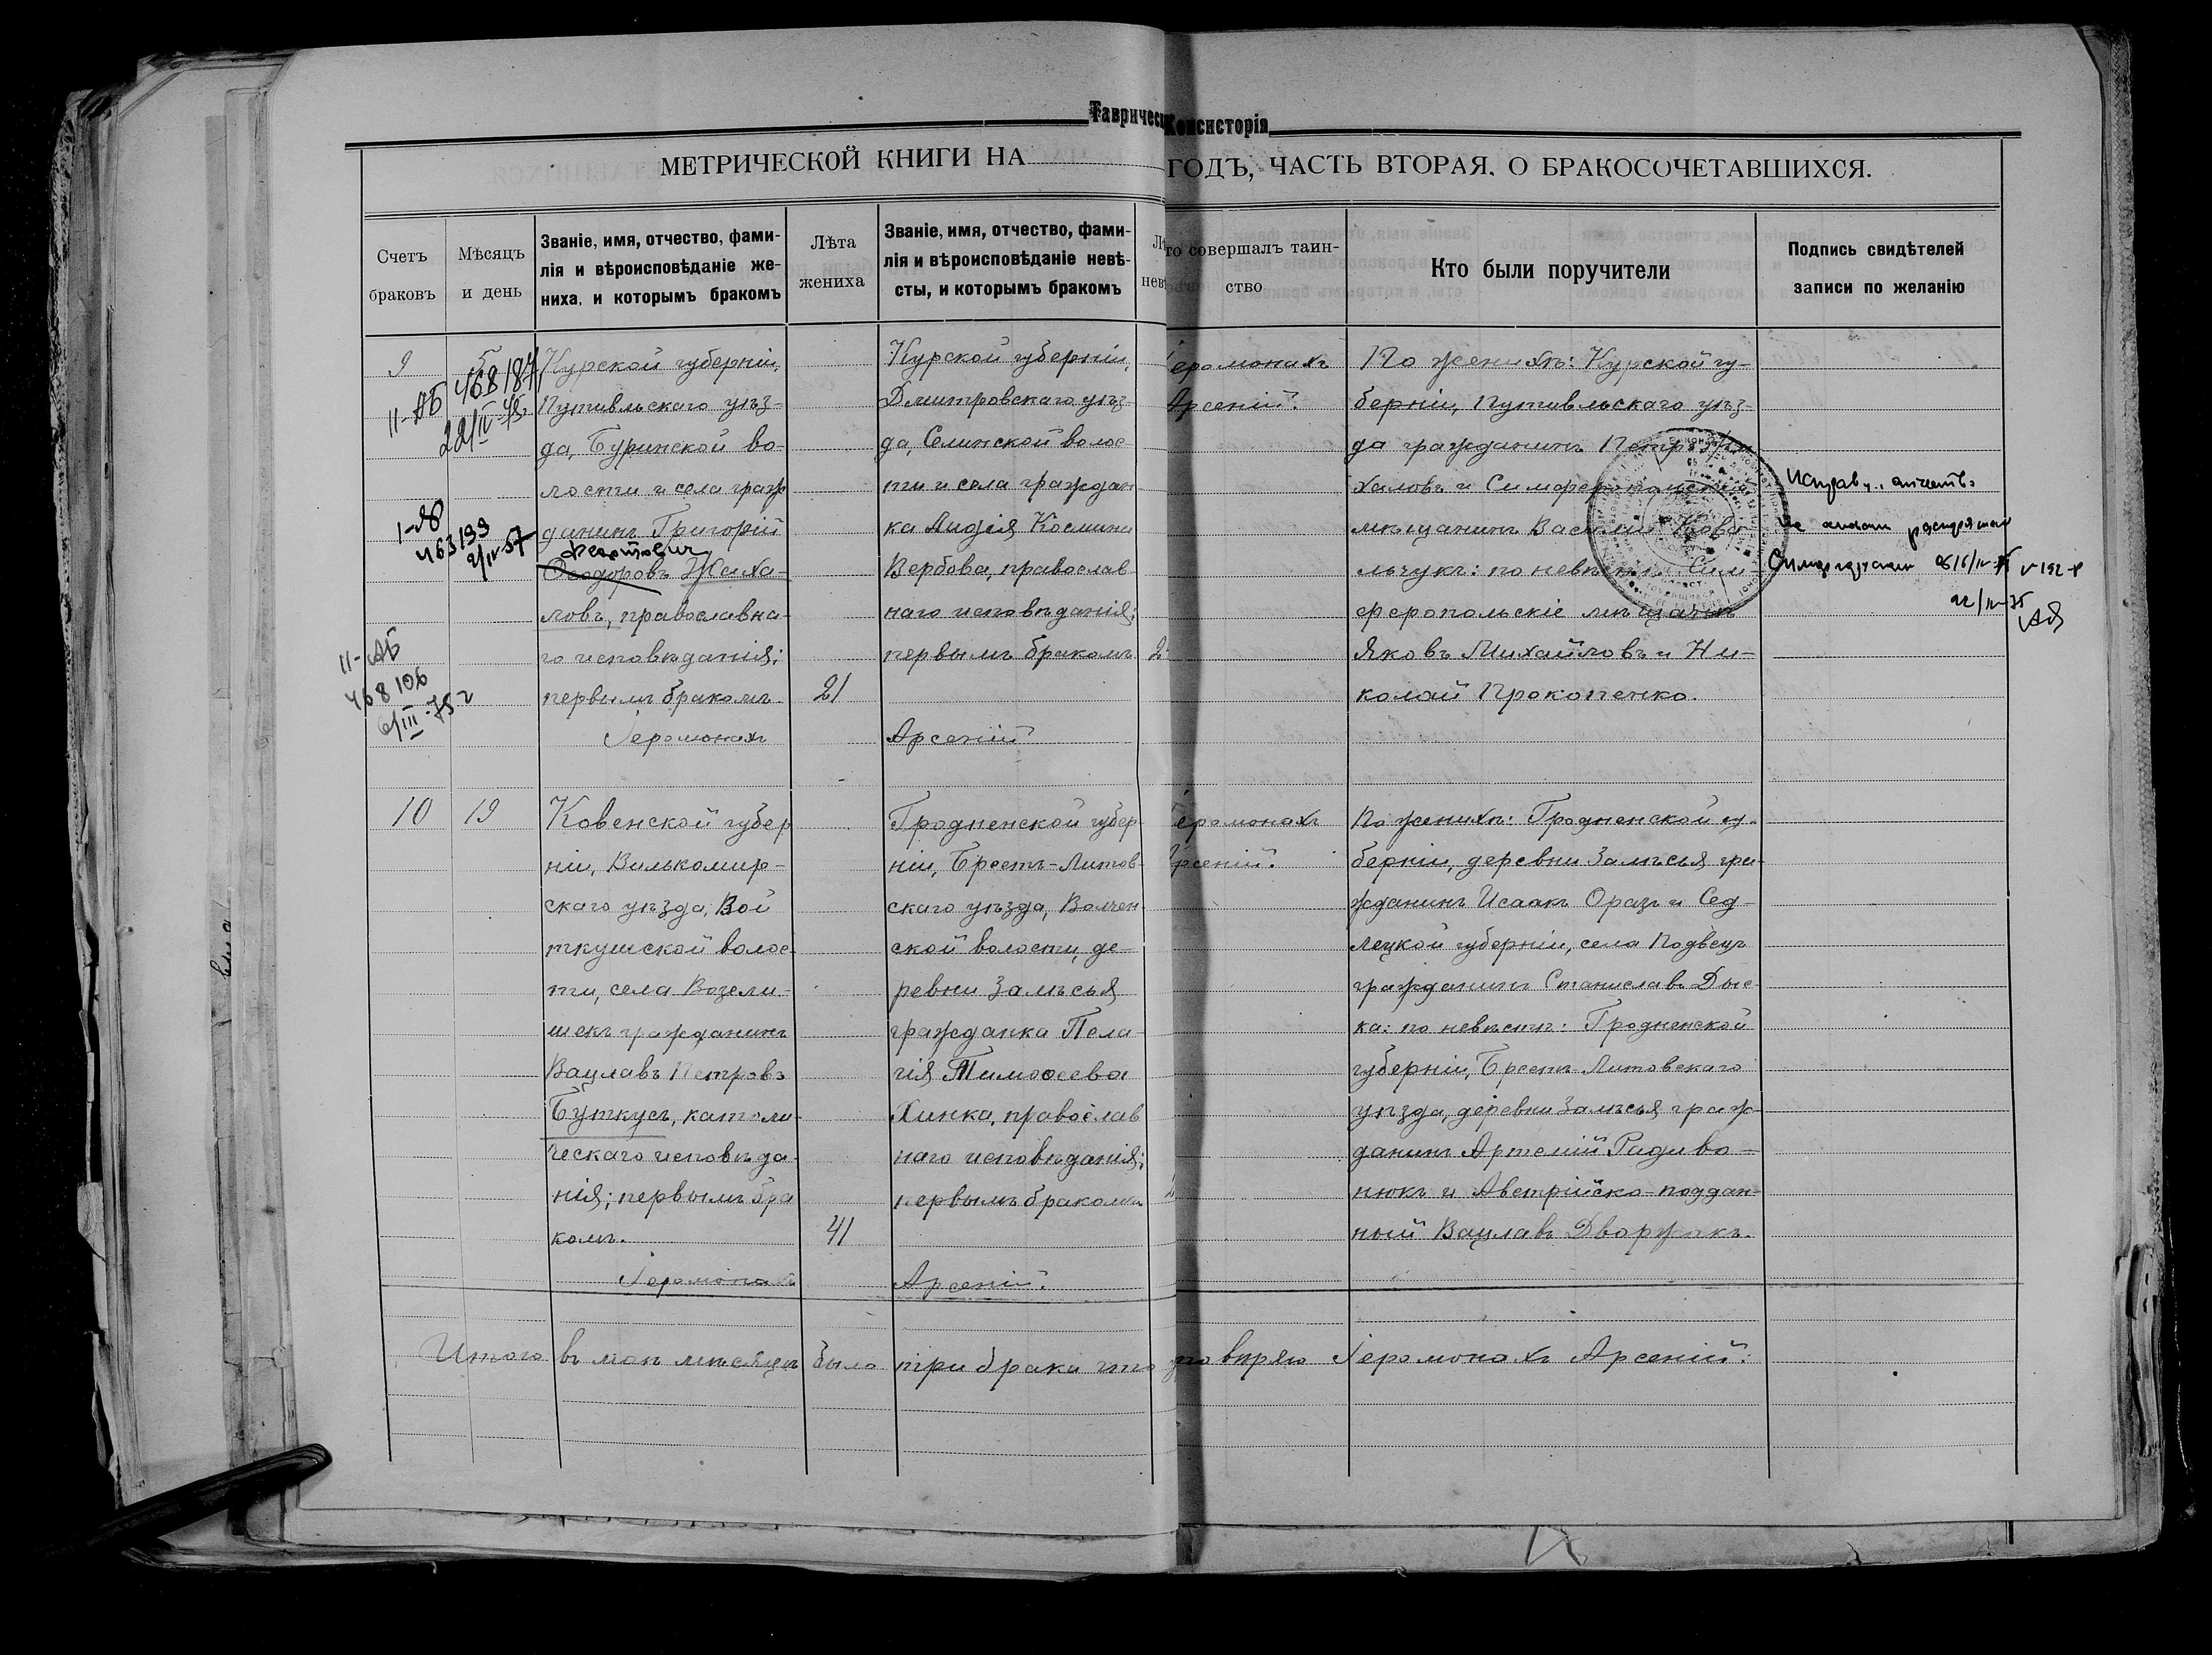 Таврическ Консисторія
МЕТРИЧЕСКОЙ КНИГИ НА ГОДЪ, ЧАСТЬ ВТОРАЯ, О БРАКОСОЧЕТАВШИХСЯ.
Счетъ
браковъ
Мѣсяцъ
и день
Званіе, имя, отчество, фами-
лія и вѣроисповѣданіе же-
ниха, и которымъ бракомъ
Лѣта
жениха
Званіе, имя, отчество, фами-
лія и вѣроисповѣданіе невѣ-
сты, и которымъ бракомъ
Лѣ
нев
то совершалъ таин-
ство
Кто были поручители
Подпись свидѣтелей
записи по желанію
9
5
II-АБ 468187
22/IV-
I-
463193
2/IV-57
II-АБ
468106
6/III-75 г
Курской губерніи,
Путивльскаго уѣз-
да, Буринской во-
лости и села граж
данинъ Григорій
Феоктович
Ѳеодоровъ Жиха-
ловъ, православна-
го исповѣданія;
первымъ бракомъ.
21
Іеромонахъ
Курской губерніи,
Дмитровскаго уѣз-
да, Селинской волос
ти и села граждан
ка Лидія Космина
Вербова, православ
наго исповѣданія;
первымъ бракомъ
2
Арсеній
еромонахъ
Арсеній.
По женихѣ: Курской гу-
берніи, Путивльскаго уѣз-
да гражданинъ Петръ
халовъ и Симферопольскій
мѣщанинъ Василій Кова-
льчукъ: по невѣстѣ Сим-
феропольскіе мѣщане
Яковъ Михайловъ и Ни-
колай Прокопенко.
22/III-75
10
19
Ковенской губер
ніи, Вилькомир-
скаго уѣзда, Вой
ткушской волос-
ти, села Возели-
шекъ гражданинъ
Вацлавъ Петровъ
Буткусъ, католи-
ческаго исповѣда-
нія; первымъ бра
комъ.
41
Іеромонахъ
Гродненской губер-
ніи, Брестъ-Литов-
скаго уѣзда, Волчен-
ской волости, де-
ревни Замѣсья
гражданка Пела-
гія Тимоѳеева
Хинка, православ
наго исповѣданія;
первымъ бракомъ
Арсеній.
еромонахъ
рсеній.
По женихѣ: Гродненской гу-
берніи, деревни Замѣсья гра-
жданинъ Исаакъ Оразъ и Сед-
лецкой губерніи, села Подвецъ
гражданинъ Станиславъ Дыс-
ка: по невѣстѣ: Гродненской
губерніи, Брестъ Литовскаго
уѣзда, деревни Замѣсья граж-
данинъ Артемій Радиво-
нюкъ и Австрійско-поддан-
ный Вацлавъ Дворжакъ.
Итого въ маѣ мѣсяцѣ было три брака что вѣряю Іеромонахъ Арсеній.